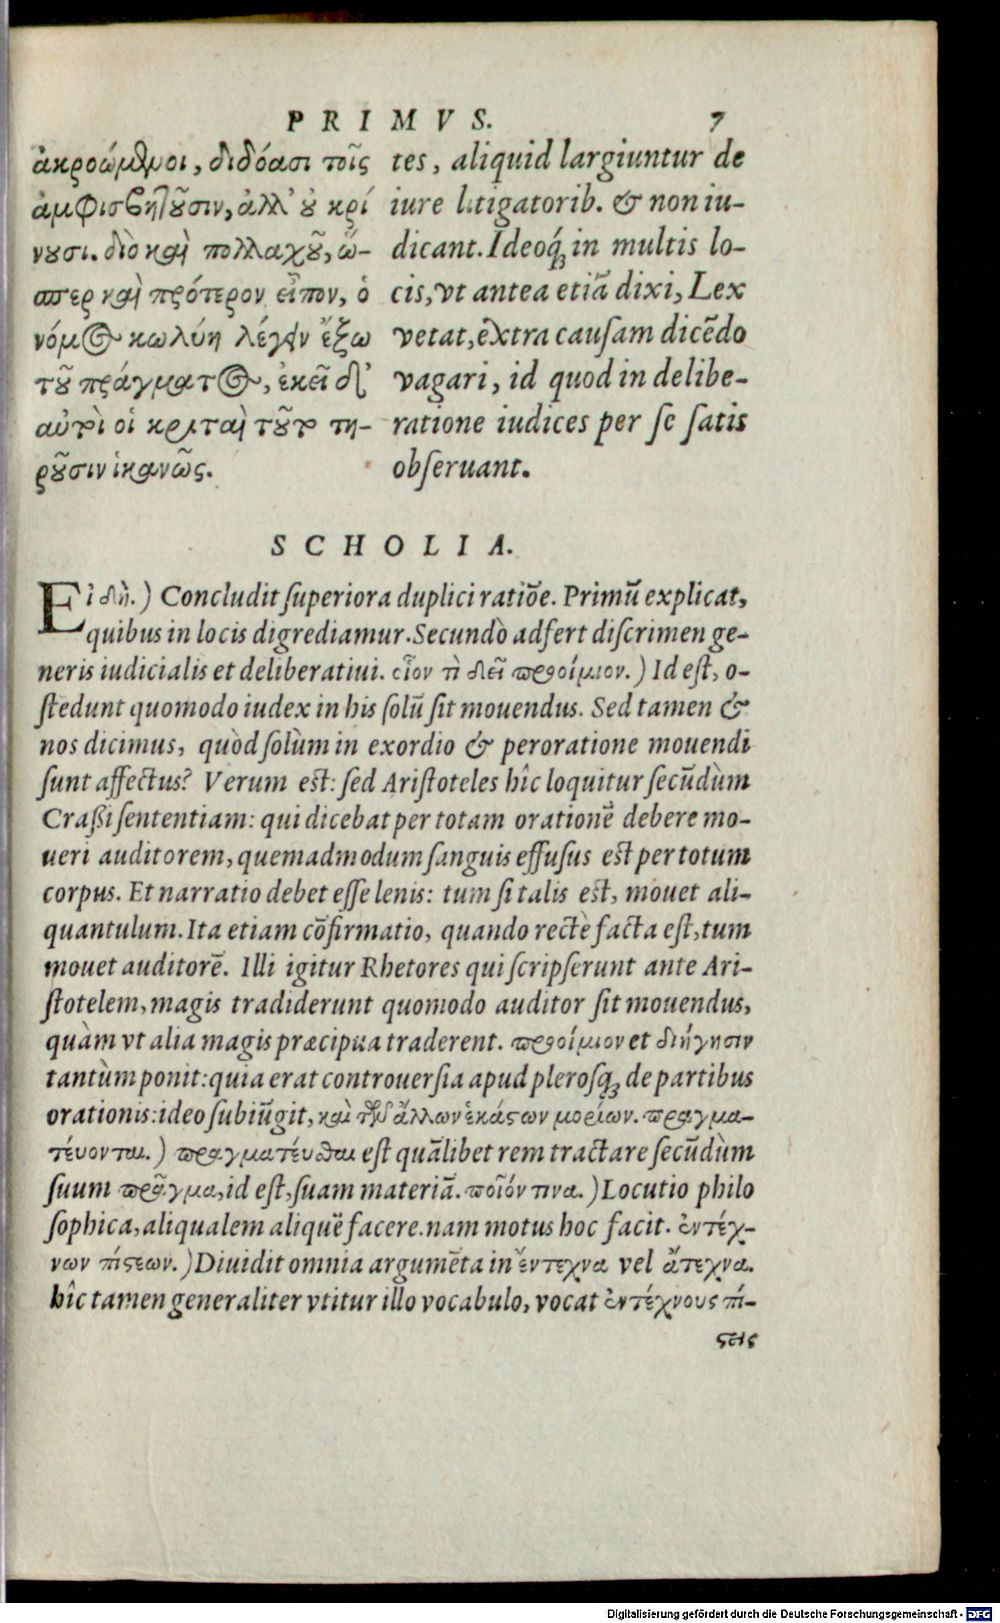 PRIMVS. 7
ἀκροώμϑμοι, διδόασι τοῖς
ἀμφισϐηȣ͂σιν, ἀλλ' ȣ̓ κρί
νȣσι. διὸ καὶ πολλαχȣ͂, ὥ-
σπερ καὶ πρότερον εἶπον, ὁ
νόμος κωλύει λέγειν ἔξω
τȣ͂ πράγματος, ἐκεῖ δ'
αὐτοὶ οἱ κριταὶ τȣ͂το τη-
ρȣ͂σιν ἱκανῶς.
tes, aliquid largiuntur de
iure litigatorib. & non iu-
dicant. Ideoq́ꝫ in multis lo-
cis, vt antea etiā dixi, Lex
vetat, extra cauſam dicēdo
vagari, id quod in delibe-
ratione iudices per ſe ſatis
obſeruant.
SCHOLIA.
Εἰ δὴ.) Concludit ſuperiora duplici ratiōe. Primū explicat,
quibus in locis digrediamur. Secundò adfert diſcrimen ge-
neris iudicialis et deliberatiui. οἷον τὶ δεῖ προοίμιον.) Id eſt, o-
ſtedunt quomodo iudex in his ſolū ſit mouendus. Sed tamen &
nos dicimus, quòd ſolùm in exordio & peroratione mouendi
ſunt affectus? Verum eſt: ſed Ariſtoteles hîc loquitur ſecūdùm
Craßi ſententiam: qui dicebat per totam orationē debere mo-
ueri auditorem, quemadmodum ſanguis effuſus eſt per totum
corpus. Et narratio debet eſſe lenis: tum ſi talis eſt, mouet ali-
quantulum. Ita etiam cōfirmatio, quando rectè facta eſt, tum
mouet auditorē. Illi igitur Rhetores qui ſcripſerunt ante Ari-
ſtotelem, magis tradiderunt quomodo auditor ſit mouendus,
quàm vt alia magis præcipua traderent. προοίμιον et διήγησιν
tantùm ponit: quia erat controuerſia apud pleroſqꝫ de partibus
orationis: ideo ſubiūgit, καὶ τῶν ἄλλων ἑκάστων μορίων. πραγμα-
τέυονται.) πραγματέυεσθαι eſt quālibet rem tractare ſecūdùm
ſuum πρᾶγμα, id eſt, ſuam materiā. ποῖόν τινα.) Locutio philo
ſophica, aliqualem aliquē facere. nam motus hoc facit. ἐντέχ-
νων πίστεων.) Diuidit omnia argumēta in ἔντεχνα vel ἄτεχνα.
hîc tamen generaliter vtitur illo vocabulo, vocat ἐντέχνους πί-
στεις
Digitalisierung gefördert durch die Deutsche Forschungsgemeinschaft - DFG